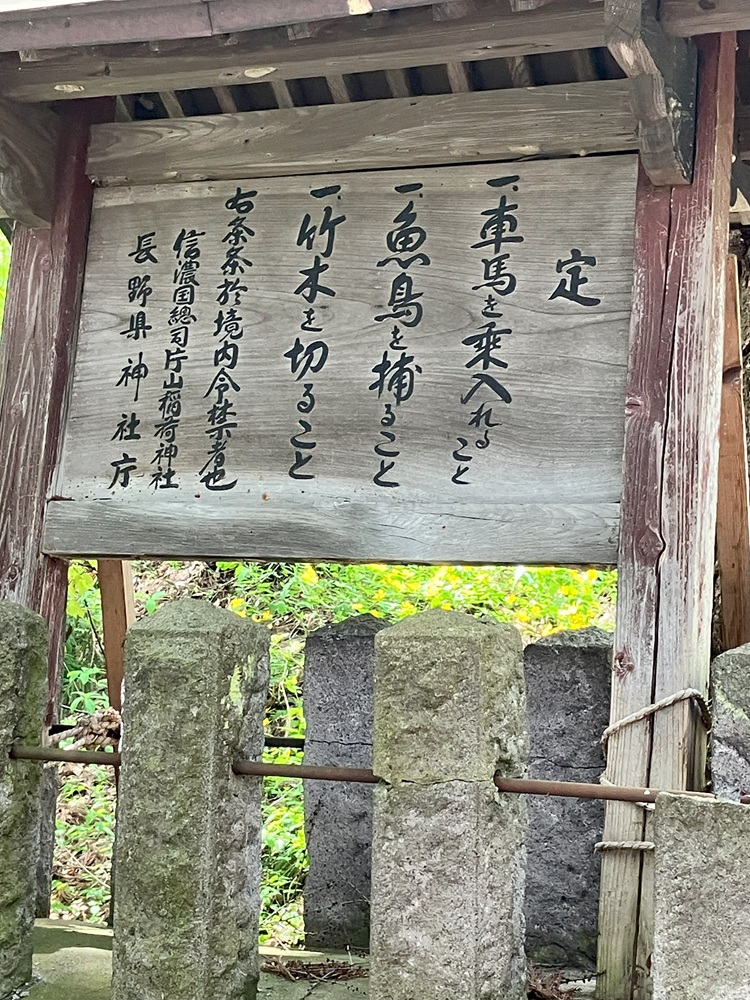 定
一、車馬を乗入れること
一、魚鳥を捕ること
一、竹木を切ること
右条条於境内令禁者也
信濃国総司片山稲荷神社
長野県神社庁